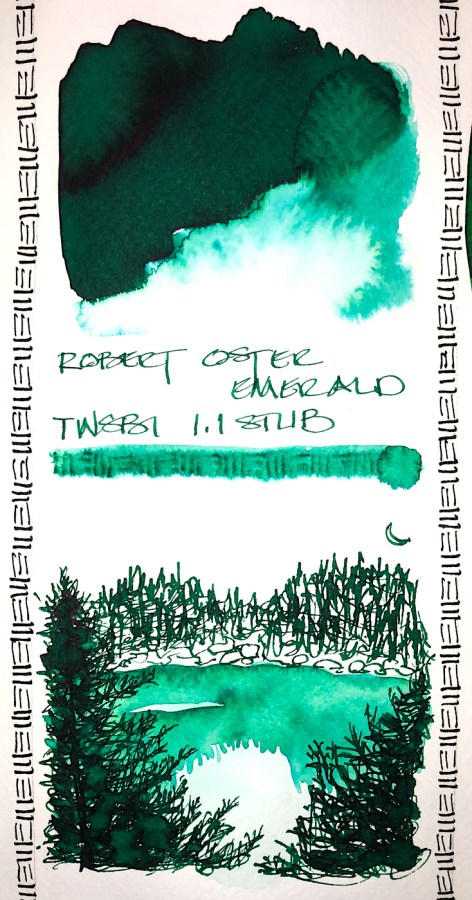 ROBERT OSTER
EMERALD
TWSBI 1.1 STUB